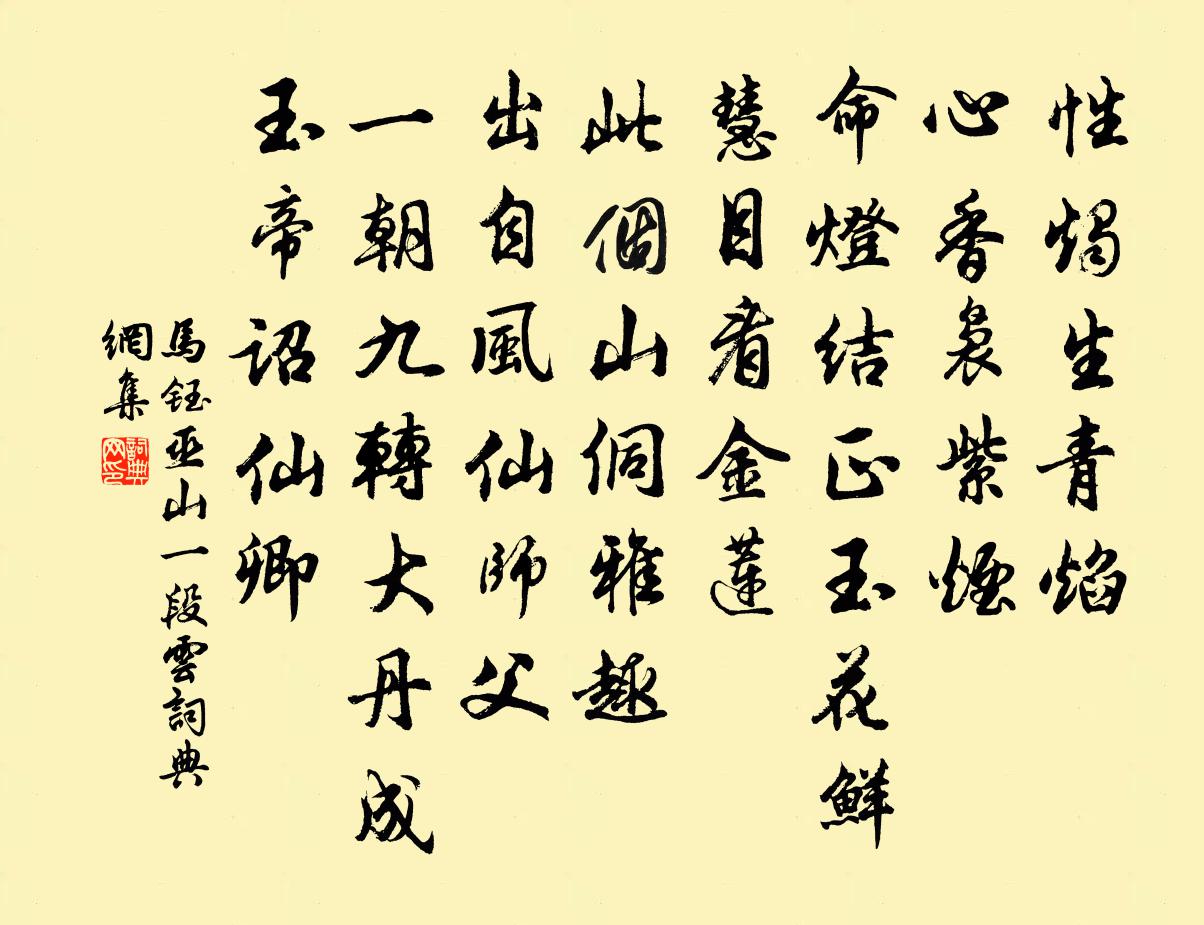 性燭生青焰
心香裊紫煙
命燈結正玉花鮮
慧目看金蓮
此個山侗雅趣
出自風仙師父
一朝九轉大丹成
玉帝詔仙卿
馬鈺巫山一段雲詞典
網集
詞典
网印